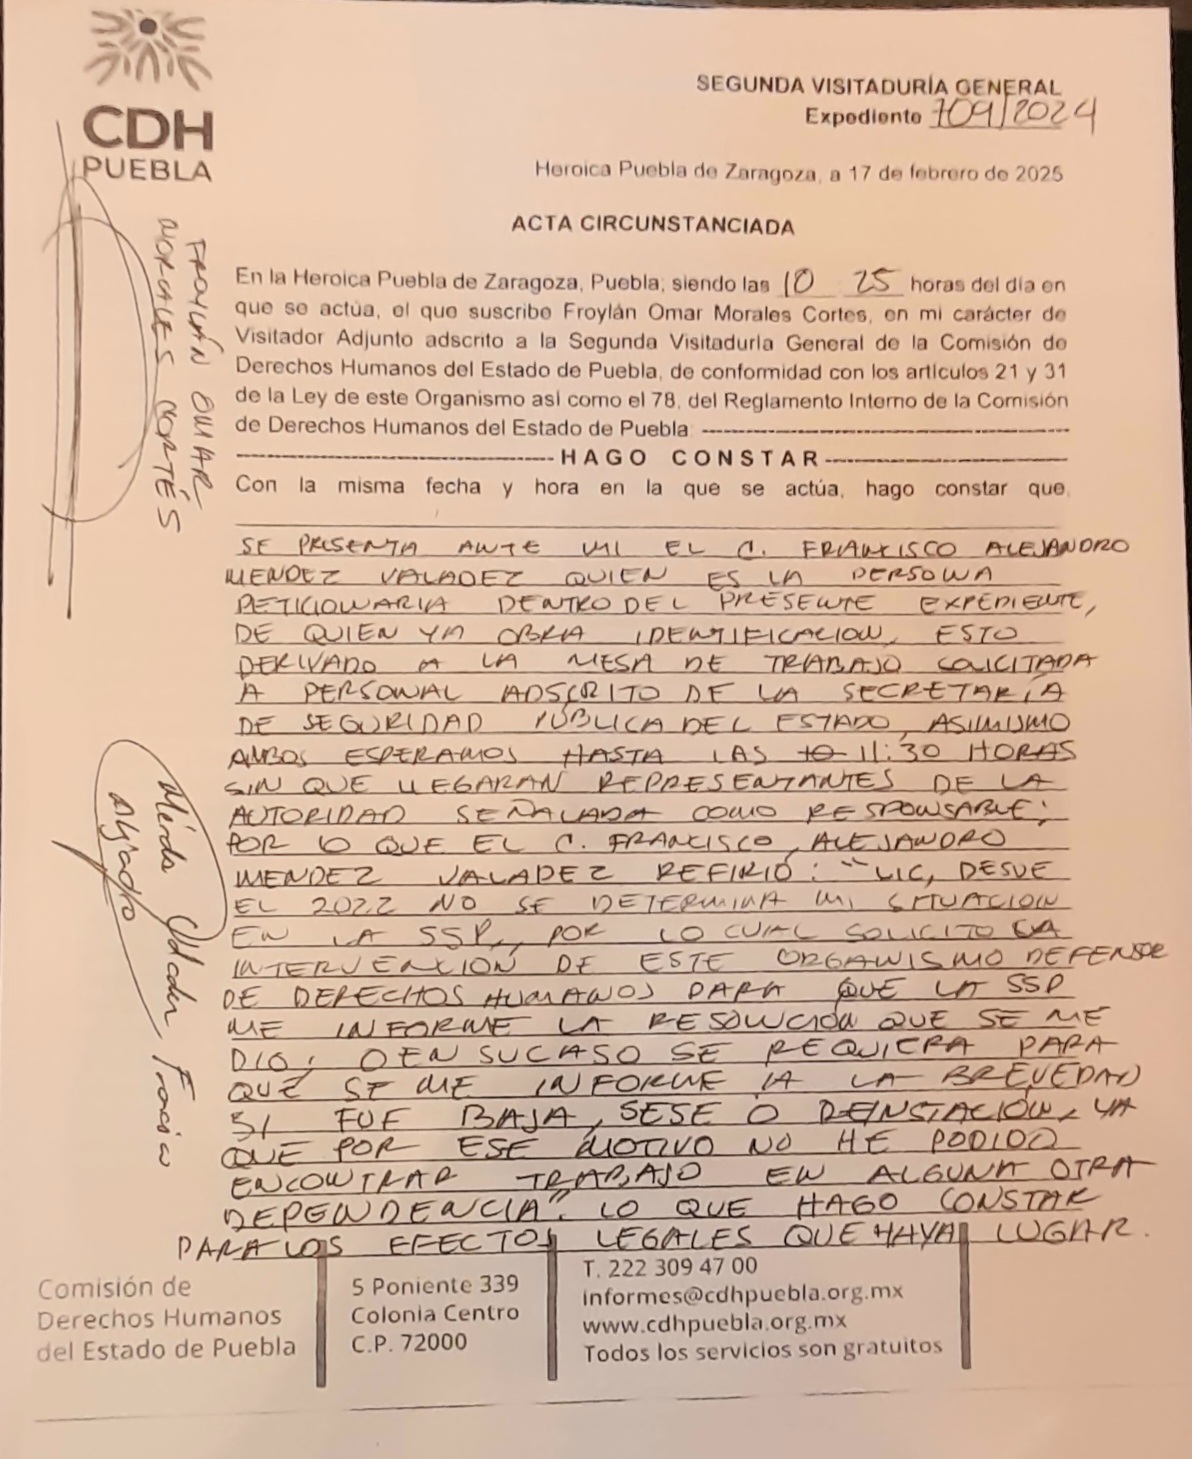 CDH
PUEBLA
SEGUNDA VISITADURÍA GENERAL
Expediente 709/2024
Heroica Puebla de Zaragoza, a 17 de febrero de 2025
ACTA CIRCUNSTANCIADA
En la Heroica Puebla de Zaragoza, Puebla; siendo las 10 25 horas del día en
que se actúa, el que suscribe Froylán Omar Morales Cortes, en mi carácter de
Visitador Adjunto adscrito a la Segunda Visitaduría General de la Comisión de
Derechos Humanos del Estado de Puebla, de conformidad con los artículos 21 y 31
de la Ley de este Organismo así como el 78, del Reglamento Interno de la Comisión
de Derechos Humanos del Estado de Puebla
HAGO CONSTAR
Con la misma fecha y hora en la que se actúa, hago constar que
SE PRESENTA ANTE MI EL C. FRANCISCO ALEJANDRO
MENDEZ VALADEZ QUIEN ES LA PERSONA
PETICIONARIA DENTRO DEL PRESENTE EXPEDIENTE,
DE QUIEN YA OBRA IDENTIFICACION, ESTO
DERIVADO A LA MESA DE TRABAJO SOLICITADA
A PERSONAL ADSCRITO DE LA SECRETARÍA
DE SEGURIDAD PÚBLICA DEL ESTADO, ASIMISMO
AMBOS ESPERAMOS HASTA LAS 10 11:30 HORAS
SIN QUE LLEGARAN REPRESENTANTES DE LA
AUTORIDAD SEÑALADA COMO RESPONSABLE;
POR LO QUE EL C. FRANCISCO, ALEJANDRO
MENDEZ VALADEZ REFIRIÓ: "LIC, DESDE
EL 2022 NO SE DETERMINA MI SITUACION
EN LA SSP, POR LO CUAL SOLICITO LA
INTERVENCIÓN DE ESTE ORGANISMO DEFENSOR
DE DERECHOS HUMANOS PARA QUE LA SSP
ME INFORME LA RESOLUCIÓN QUE SE ME
DIO, O EN SU CASO SE REQUIERA PARA
QUE SE ME INFORME A LA BREVEDAD
SI FUE BAJA, SESE O REINSTACIÓN, YA
QUE POR ESE MOTIVO NO HE PODIDO
ENCONTRAR TRABAJO EN ALGUNA OTRA
DEPENDENCIA". LO QUE HAGO CONSTAR
PARA LOS EFECTOS LEGALES QUE HAYA LUGAR.
FROYLÁN OMAR
MORALES CORTÉS
Méndez Valadez Francisco
Alejandro
Comisión de
Derechos Humanos
del Estado de Puebla
5 Poniente 339
Colonia Centro
C.P. 72000
T. 222 309 47 00
informes@cdhpuebla.org.mx
www.cdhpuebla.org.mx
Todos los servicios son gratuitos